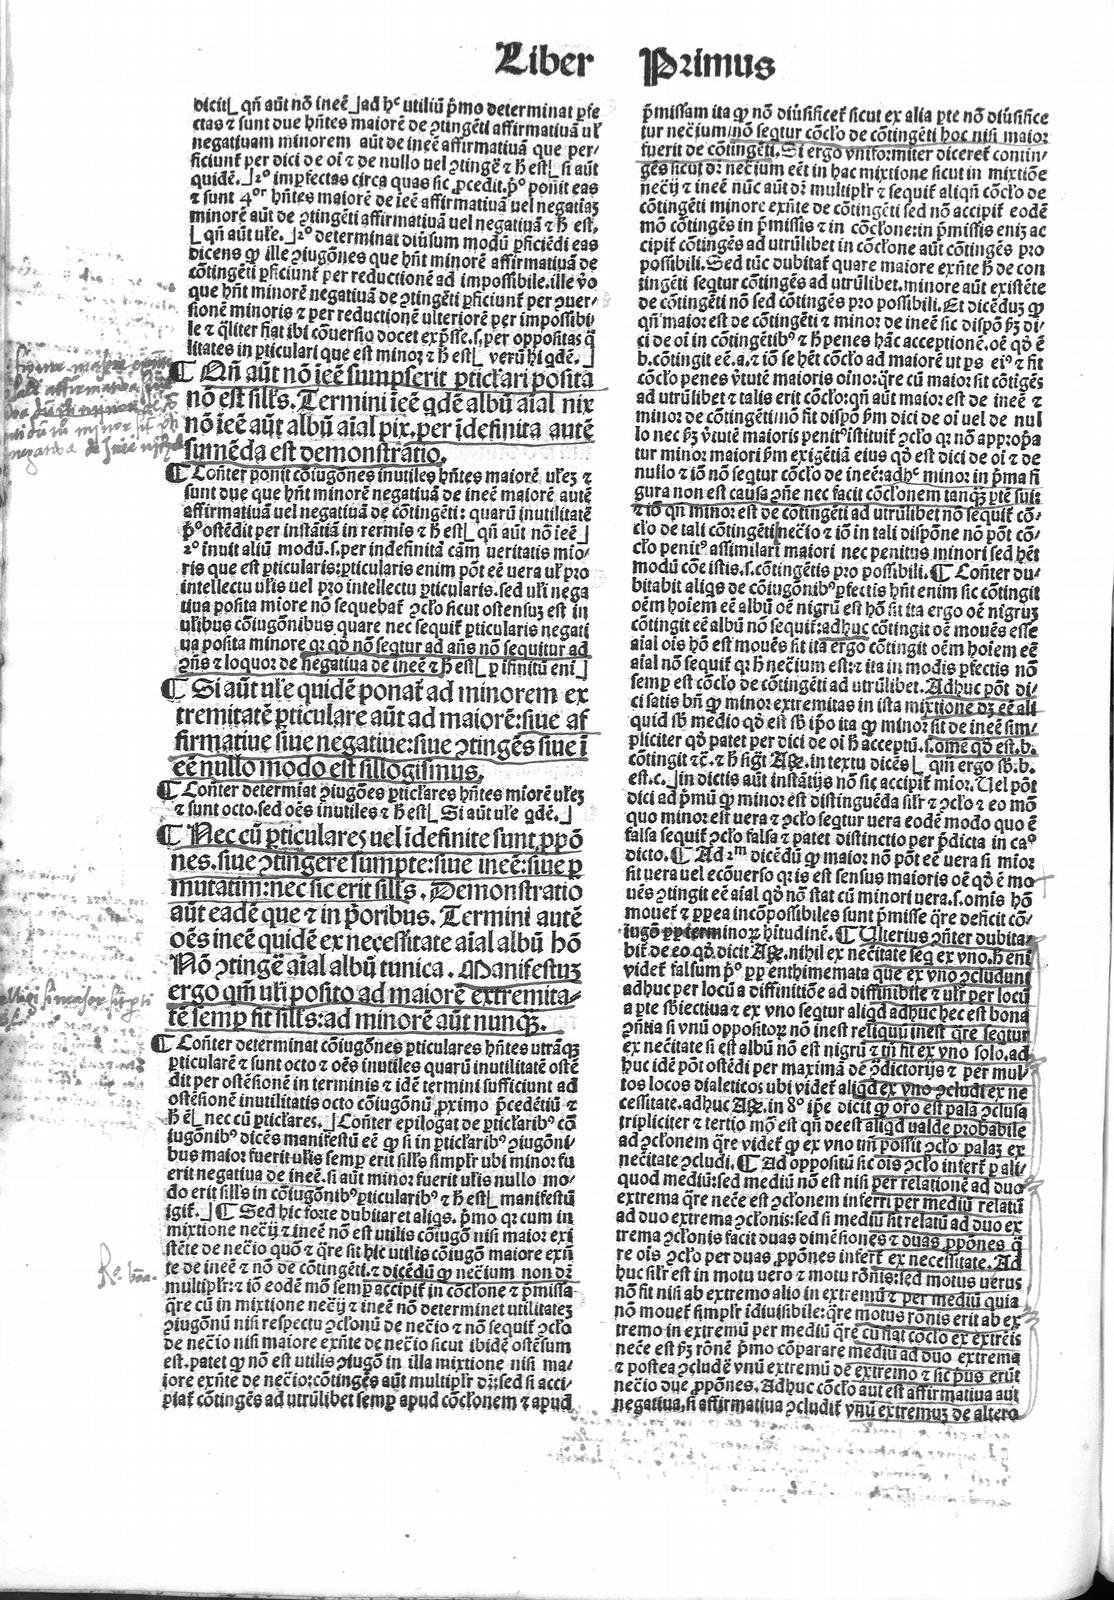 Liber Primus
dicit qñ aūt nō ineē ad hᶜ utiliū p̄mo determinat ꝑfe
ctas ⁊ sunt due hñtes maiorē de ꝯtingēti affirmatiuā ul̄
negatiuam minorem aūt de ineē affirmatiuā que per/
ficiunt̄ per dici de oī ⁊ de nullo uel ꝯtingē ⁊ h̄ est si aūt
quidē. 2º imꝑfectas circa quas sic ꝓcedit. p̄º ponit eas
⁊ sunt 4ᵒʳ hñtes maiorē de ieē affirmatiuā uel negatiāꝫ
minorē aūt de ꝯtingēti affirmatiuā uel negatiuā ⁊ h̄ est,
qñ aūt ul̄e. 2º determinat diūsum modū ꝑficiēdi eas
dicens ꝙ ille ꝯiugōnes que hñt minorē affirmatiuā de
cōtingēti ꝑficiunt̄ per reductionē ad impossibile. ille v̄o
que hñt minorē negatiuā de ꝯtingēti ꝑficiunt̄ per ꝯuer/
sionē minoris ⁊ per reductionē ulteriorē per impossibi
le ⁊ q̄liter fiat ibi cōuersio docet exp̄sse. s. per oppositas q̄
litates in ꝑticulari que est minor ⁊ h̄ est verū hi qdē.
¶ Qñ aūt nō ieē sumpserit ꝑticl̄ari posita
nō est sill̄s. Termini ieē qdē albū aīal nix
nō ieē aūt albū aīal pix. per īdefinita autē
sumēda est demonstratio.
¶ Cōñter ponit cōiugōnes inutiles hñtes maiorē ul̄eꝫ ⁊
sunt due que hñt minorē negatiuā de ineē maiorē autē
affirmatiuā uel negatiuā de cōtingēti: quarū inutilitatē
p̄º ostēdit per instātiā in termis ⁊ h̄ est qñ aūt nō ieē
2º inuit aliū modū. s. per indefinitā cām ueritatis mio/
ris que est ꝑticularis: ꝑticularis enim pōt eē uera ul̄ pro
intellectu ul̄is uel pro intellectu ꝑticularis. sed ul̄i nega
tiua posita miore nō sequebat̄ ꝯcl̄o sicut ostensuꝫ est in
ul̄ibus cōiugōnibus quare nec sequit̄ ꝑticularis negati
ua posita minore qꝛ qđ nō sequtur ad añs nō sequitur ad
ꝯñs ⁊ loquor de negatiua de ineē ⁊ h̄ est ꝑ īfinitū enī
¶ Si aūt ul̄e quidē ponat̄ ad minorem ex
tremitatē ꝑticulare aūt ad maiorē: siue af
firmatiue siue negatiue: siue ꝯtingēs siue ī
eē nullo modo est sillogismus.
¶ Cōñter determiat ꝯiugōes ꝑticl̄ares hñtes miorē ul̄eꝫ
⁊ sunt octo. sed oēs inutiles ⁊ h̄ est Si aūt ul̄e qdē.
¶ Nec cū ꝑticulares uel īdefinite sunt ꝓpō
nes. siue ꝯtingere sumpte: siue ineē: siue ꝑ
mutatim: nec sic erit sill̄s. Demonstratio
aūt eadē que ⁊ in p̄oribus. Termini autē
oēs ineē quidē ex necessitate aīal albū hō
Nō ꝯtingē aīal albū tunica. Manifestuꝫ
ergo qm̄ ul̄i posito ad maiorē extremita-
tē semꝑ fit sill̄s: ad minorē aūt nunqꝫ.
¶ Cōñter determinat cōiugōnes ꝑticulares hñtes utrāqꝫ
ꝑticularē ⁊ sunt octo ⁊ oēs inutiles quarū inutilitatē ostē
dit per ostēsionē in terminis ⁊ idē termini sufficiunt ad
ostēsionē inutilitatis octo cōiugōnū ꝓximo p̄cedētiū ⁊
h̄ ē nec cū ꝑticl̄ares. Cōñter epilogat de ꝑticl̄aribꝰ cō
iugōnibꝰ dicēs manifestū eē ꝙ si in ꝑticl̄aribꝰ ꝯiugōni/
bus maior fuerit ul̄is semꝑ erit sill̄s simpl̄r ubi minor fu
erit negatiua de ineē. si aūt minor fuerit ul̄is nullo mo/
do erit sill̄s in cōiugōnibꝰ ꝑticularibꝰ ⁊ h̄ est manifestū
igit̄. ¶ Sed hic forte dubitaret aliqs. p̄mo qꝛ cum in
mixtione necīj ⁊ ineē nō est utilis cōiugō nisi maior exi
stēte de necīo quō ⁊ q̄re sit hic utilis cōiugō maiore exñ
te de ineē ⁊ nō de cōtingēti. ⁊ dicēdū ꝙ necīum non dꝛ
multipl̄r: ⁊ iō eodē mō semꝑ accipit̄ in cōcl̄one ⁊ p̄missa
q̄re cū in mixtione necīj ⁊ ineē nō determinet utilitateꝫ
ꝯiugōnū nisi respectu ꝯcl̄onū de necīo ⁊ nō sequit̄ ꝯcl̄o
de necīo nisi maiore exñte de necīo sicut ibidē ostēsum
est. patet ꝙ nō est utilis ꝯiugō in illa mixtione nisi ma/
iore exñte de necīo: cōtingēs aūt multipl̄r dꝛ: sed si acci/
piat̄ cōtingēs ad utrūlibet semꝑ apud cōcl̄onem ⁊ apud
p̄missam ita ꝙ nō diūsificet̄ sicut ex alia ꝑte nō diūsifice
tur necīum/ nō seqtur cōcl̄o de cōtingēti hoc nisi maior
fuerit de cōtingēti. Si ergo vniformiter diceret̄ contin/
gēs sicut dꝛ necīum eēt in hac mixtione sicut in mixtiōe
necīj ⁊ ineē nūc aūt dꝛ multipl̄r ⁊ sequit̄ aliqñ cōcl̄o de
cōtingēti minore exñte de cōtingēti sed nō accipit̄ eodē
mō cōtingēs in p̄missis ⁊ in cōcl̄one: in p̄missis enīꝫ ac
cipit̄ cōtingēs ad utrūlibet in cōcl̄one aūt cōtingēs pro
possibili. Sed tūc dubitat̄ quare maiore exñte h̄ de con
tingēti seqtur cōtingēs ad utrūlibet. minore aūt existēte
de cōtingēti nō sed cōtingēs pro possibili. Et dicēduꝫ ꝙ
qñ maior est de cōtingēti ⁊ minor de ineē sic dispō pꝫ di/
ci de oī in cōtingētibꝰ ⁊ h̄ penes hāc acceptionē. oē qđ ē
b. cōtingit eē. a. ⁊ iō se hēt cōcl̄o ad maiorē ut ꝑs eiꝰ ⁊ fit
cōcl̄o penes v̄tutē maioris oīno: q̄re cū maior sit cōtigēs
ad utrūlibet ⁊ talis erit cōcl̄o: qñ aūt maior est de ineē ⁊
minor de cōtingēti/ nō fit dispō p̄m dici de oī uel de nul
lo nec pꝫ v̄tutē maioris penitꝰ īstituit̄ ꝯcl̄o qꝛ nō appropa
tur minor maiori p̄m exigētiā eius qđ est dici de oī ⁊ de
nullo ⁊ iō nō seqtur cōcl̄o de ineē: adhᶜ minor in p̄ma fi
gura non est causa ꝯñe nec facit cōcl̄onem tanqꝫ ꝑte sui:
⁊ iō qñ minor est de cōtingēti ad utrūlibet nō sequit̄ cō-
cl̄o de tali cōtingēti/ necīo ⁊ iō in tali dispōne nō pōt cō/
cl̄o penitꝰ assimilari maiori nec penitus minori sed hēt
modū cōe istis. s. cōtingētis pro possibili. ¶ Cōñter du/
bitabit aliqs de cōiugōnibꝰ ꝑfectis hñt enim sic cōtingit
oēm hoiem eē albū oē nigrū est hō sit ita ergo oē nigruꝫ
cōtingit eē albū nō sequit̄: adhuc cōtingit oē mouēs esse
aīal oīs hō est mouēs sit ita ergo cōtingit oēm hoiem eē
aīal nō sequit̄ qꝛ h̄ necīum est: ⁊ ita in modis ꝑfectis nō
semꝑ est cōcl̄o de cōtingēti ad utrūlibet. Adhuc pōt di/
ci satis bñ ꝙ minor extremitas in ista mixtione dꝫ eē ali
quid sb̄ medio qđ est sb̄ ip̄o ita ꝙ minor sit de ineē sim/
pliciter qđ patet per dici de oī h̄ acceptū. s. omē qđ est. b.
cōtingit ⁊c̄. ⁊ h̄ sigt̄ Aꝶ. in textu dicēs qm̄ ergo sb̄. b.
est. c. in dictis aūt instātijs nō sic accipit̄ mior. Uel pōt
dici ad p̄mū ꝙ minor est distinguēda sil̄r ⁊ ꝯcl̄o ⁊ eo mō
quo minor est uera ⁊ ꝯcl̄o seqtur uera eodē modo quo ē
falsa sequit̄ ꝯcl̄o falsa ⁊ patet distinctio per p̄dicta in caº
dicto. ¶ Ad 2ᵐ dicēdū ꝙ maior nō pōt eē uera si mior
sit uera uel ecōuerso qꝛ is est sensus maioris oē qđ ē mo
uēs ꝯtingit eē aīal qđ nō stat cū minori uera. s. omis hō
mouet̄ ⁊ ꝓpea incōpossibiles sunt p̄misse q̄re deficit cō/
iugō ꝓpterminorꝫ hitudinē. ¶ Ulterius ꝯñter dubita/
bit̄ de. eo qđ dicit Aꝶ. nihil ex necītate seq ex vno. h̄ enī
videt̄ falsum p̄º ꝓp enthimemata que ex vno ꝯcludunt
adhuc per locū a diffinitiōe ad diffinibile ⁊ ul̄r per locū
a ꝑte sb̄iectiua ⁊ ex vno seqtur aliqd adhuc hec est bona
ꝯñtia si vnū oppositorꝫ nō inest reliquū inest q̄re seqtur
ex necītate si est albū nō est nigrū ⁊ tn̄ fit ex vno solo. ad
huc idē pōt ostēdi per maximā de ꝯdictorijs ⁊ per mul/
tos locos dialeticos ubi videt̄ aliqd ex vno ꝯcludi ex ne
cessitate. adhuc Aꝶ. in 8º ip̄e dicit ꝙ oro est palā ꝯclusa
tripliciter ⁊ tertio mō est qñ deest aliqd ualde probabile
ad ꝯcl̄onem q̄re videt̄ ꝙ ex vno un̄ possit ꝯcl̄o palaꝫ ex
necītate ꝯcludi. ¶ Ad oppositū sic oīs ꝯcl̄o infert̄ ꝑ ali/
quod mediū: sed mediū nō est nisi per relationē ad duo
extrema q̄re necē est ꝯcl̄onem inferri per mediū relatū
ad duo extrema ꝯcl̄onis: sed si mediū sit relatū ad duo ex
trema ꝯcl̄onis facit duas dimēsiones ⁊ duas ꝓpōnes q̄
re oīs ꝯcl̄o per duas ꝓpōnes infert̄ ex necessitate. Ad
huc sil̄r est in motu uero ⁊ motu rōnis: sed motus uerus
nō fit nisi ab extremo alio in extremū ⁊ per mediū quia
nō mouet̄ simpl̄r īdiuisibile: q̄re motus rōnis erit ab ex
tremo in extremū per mediū q̄re cū fiat cōcl̄o ex extreīs
necē est pꝫ rōnē p̄mo cōparare mediū ad duo extrema
⁊ postea ꝯcludē vnū extremū de extremo ⁊ sic p̄us erūt
necīo due ꝓpōnes. Adhuc cōcl̄o aut est affirmatiua aut
negatiua, si affirmatiua ꝯcludit̄ vnū extremuꝫ de altero